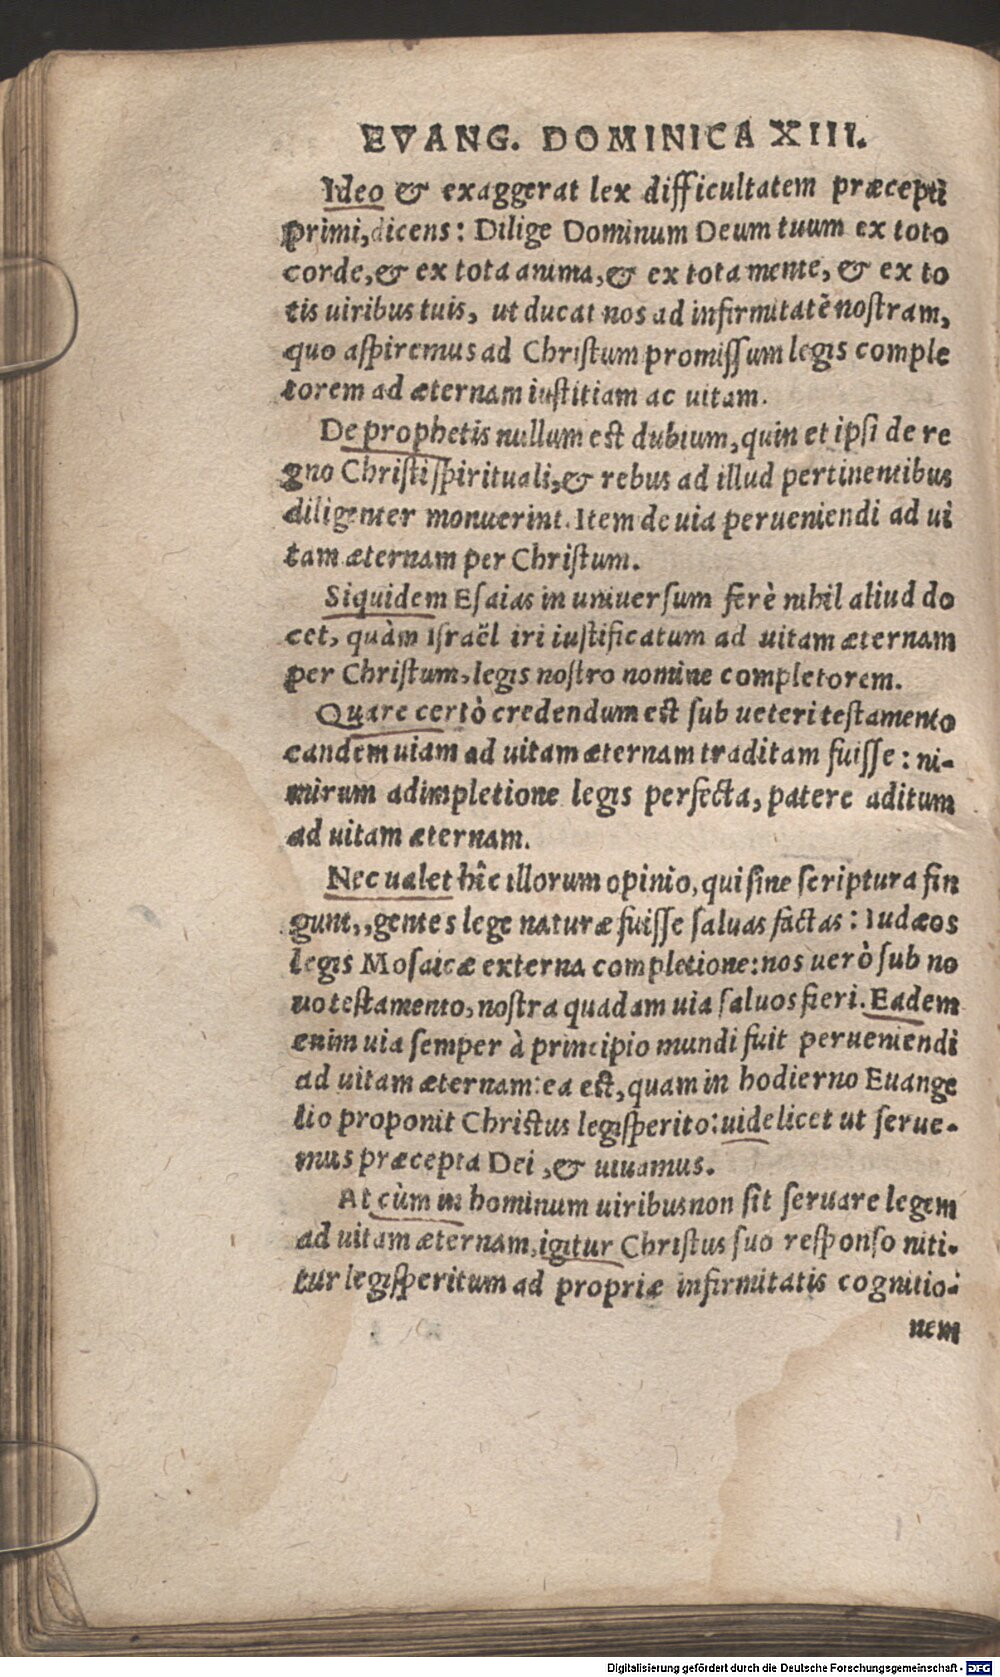 EVANG. DOMINICA XIII.
Ideo & exaggerat lex difficultatem præcepti
primi, dicens: Dilige Dominum Deum tuum ex toto
corde, & ex tota anima, & ex tota mente, & ex to
tis uiribus tuis, ut ducat nos ad infirmitatē noſtram,
quo aſpiremus ad Chriſtum promiſſum legis comple
torem ad æternam iuſtitiam ac uitam.
De prophetis nullum est dubium, quin et ipſi de re
gno Chriſti ſpirituali, & rebus ad illud pertinentibus
diligenter monuerint. Item de uia perueniendi ad ui
tam æternam per Chriſtum.
Siquidem Eſaias in uniuerſum ferè nihil aliud do
cet, quàm Iſraël iri iuſtificatum ad uitam æternam
per Chriſtum, legis noſtro nomine completorem.
Quare certò credendum est ſub ueteri teſtamento
eandem uiam ad uitam æternam traditam fuiſſe: ni-
mirum adimpletione legis perfecta, patere aditum
ad uitam æternam.
Nec ualet hîc illorum opinio, qui ſine ſcriptura fin
gunt,, gentes lege naturæ fuiſſe ſaluas factas: Iudæos
legis Moſaicæ externa completione: nos uerò ſub no
uo teſtamento, noſtra quadam uia ſaluos fieri. Eadem
enim uia ſemper à principio mundi fuit perueniendi
ad uitam æternam: ea est, quam in hodierno Euange
lio proponit Christus legiſperito: uidelicet ut ſerue-
mus præcepta Dei, & uiuamus.
At cùm in hominum uiribus non ſit ſeruare legem
ad uitam æternam, igitur Chriſtus ſuo reſponſo niti-
tur legiſperitum ad propriæ infirmitatis cognitio-
nem
Digitalisierung gefördert durch die Deutsche Forschungsgemeinschaft - DFG